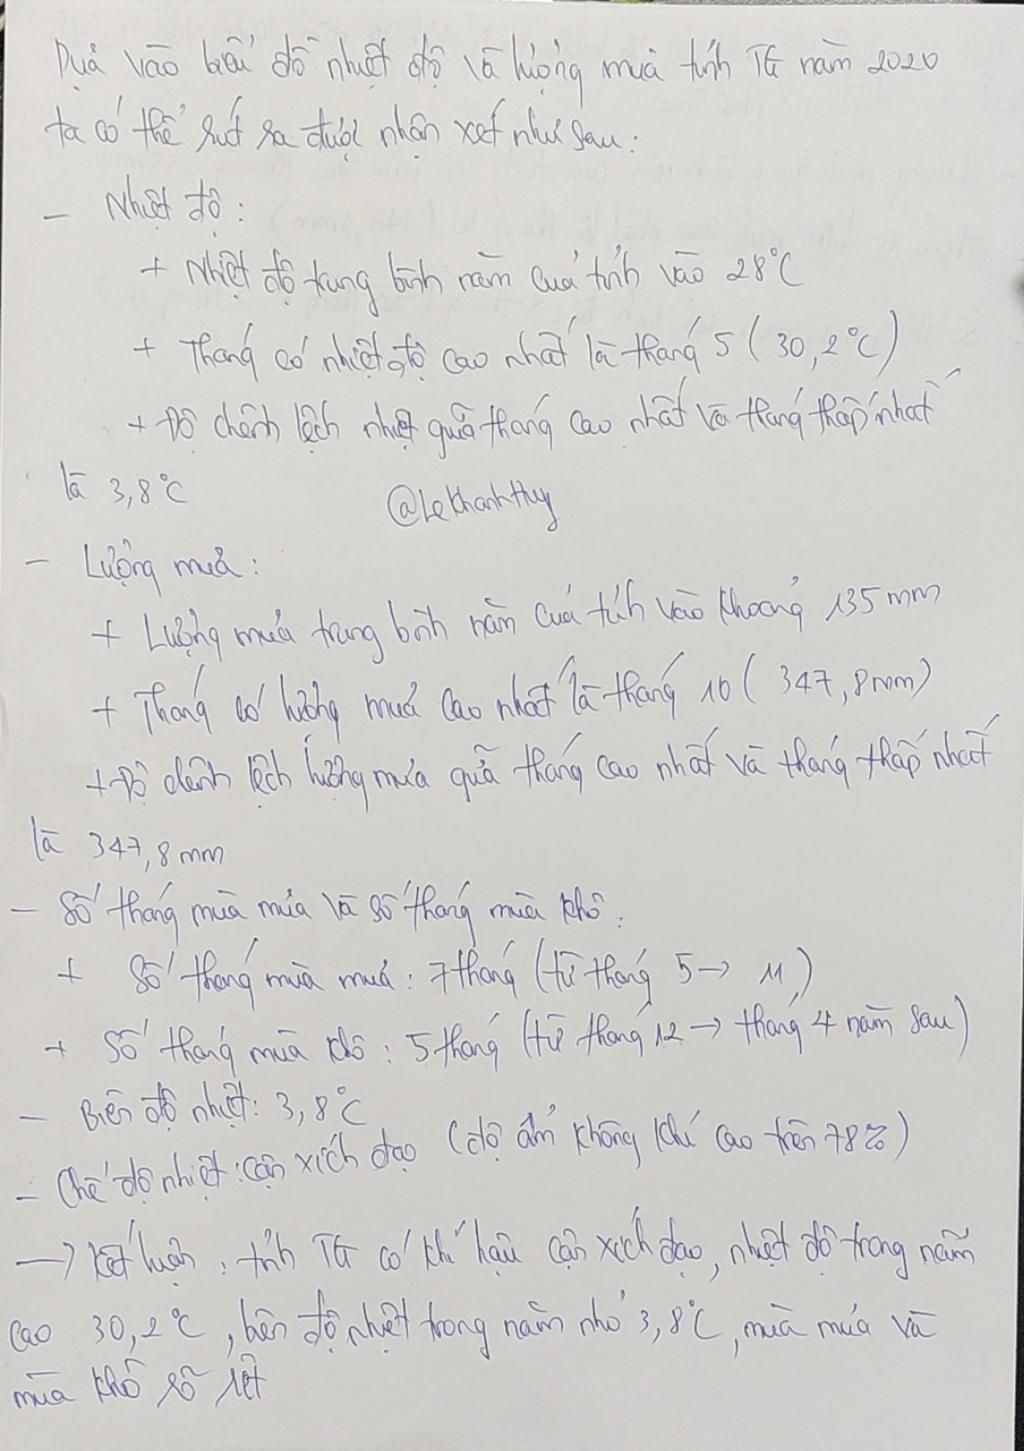 Dựa vào biểu đồ nhiệt độ và lượng mưa tỉnh TG năm 2020
ta có thể rút ra được nhận xét như sau:
- Nhiệt độ:
+ Nhiệt độ trung bình năm của tỉnh vào 28°C
+ Tháng có nhiệt độ cao nhất là tháng 5 (30,2°C)
+ Độ chênh lệch nhiệt giữa tháng cao nhất và tháng thấp nhất
là 3,8°C
@LeKhanhHuy
- Lượng mưa:
+ Lượng mưa trung bình năm của tỉnh vào khoảng 135mm
+ Tháng có lượng mưa cao nhất là tháng 10 (347,8mm)
+ Độ chênh lệch lượng mưa giữa tháng cao nhất và tháng thấp nhất
là 347,8mm
- Số tháng mùa mưa và số tháng mùa khô:
+ Số tháng mùa mưa: 7 tháng (từ tháng 5 → 11)
+ Số tháng mùa khô: 5 tháng (từ tháng 12 → tháng 4 năm sau)
- Biên độ nhiệt: 3,8°C
- Chế độ nhiệt: cận xích đạo (độ ẩm không khí cao trên 78%)
→ Kết luận: tỉnh TG có khí hậu cận xích đạo, nhiệt độ trong năm
cao 30,2°C, biên độ nhiệt trong năm nhỏ 3,8°C, mùa mưa và
mùa khô rõ rệt